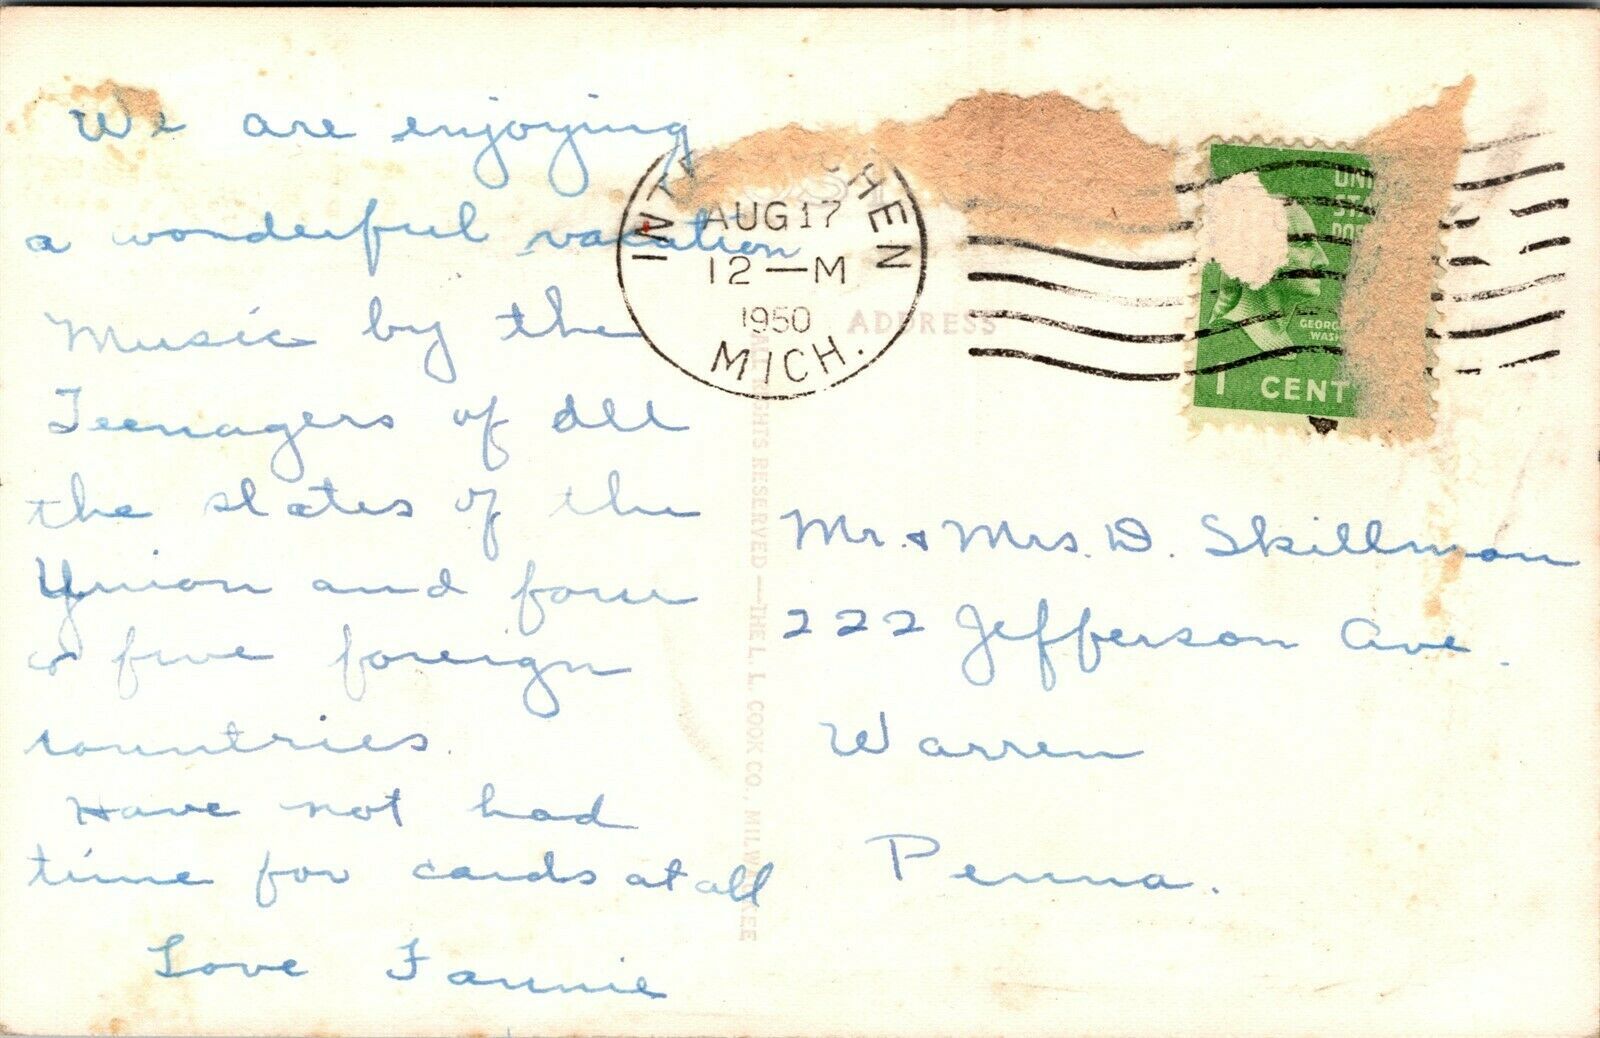 We are enjoying
a wonderful vacation
Music by the
Teenagers of all
the states of the
Union and four
or five foreign
countries.
Have not had
time for cards at all
Love Fannie
AUG 17
12—M
1950
MICH.
ADDRESS
RIGHTS RESERVED—THE L. L. COOK CO., MILWAUKEE
GEORG
WASH
1 CENT
Mr. & Mrs. D. Skillman
222 Jefferson Ave.
Warren
Penna.